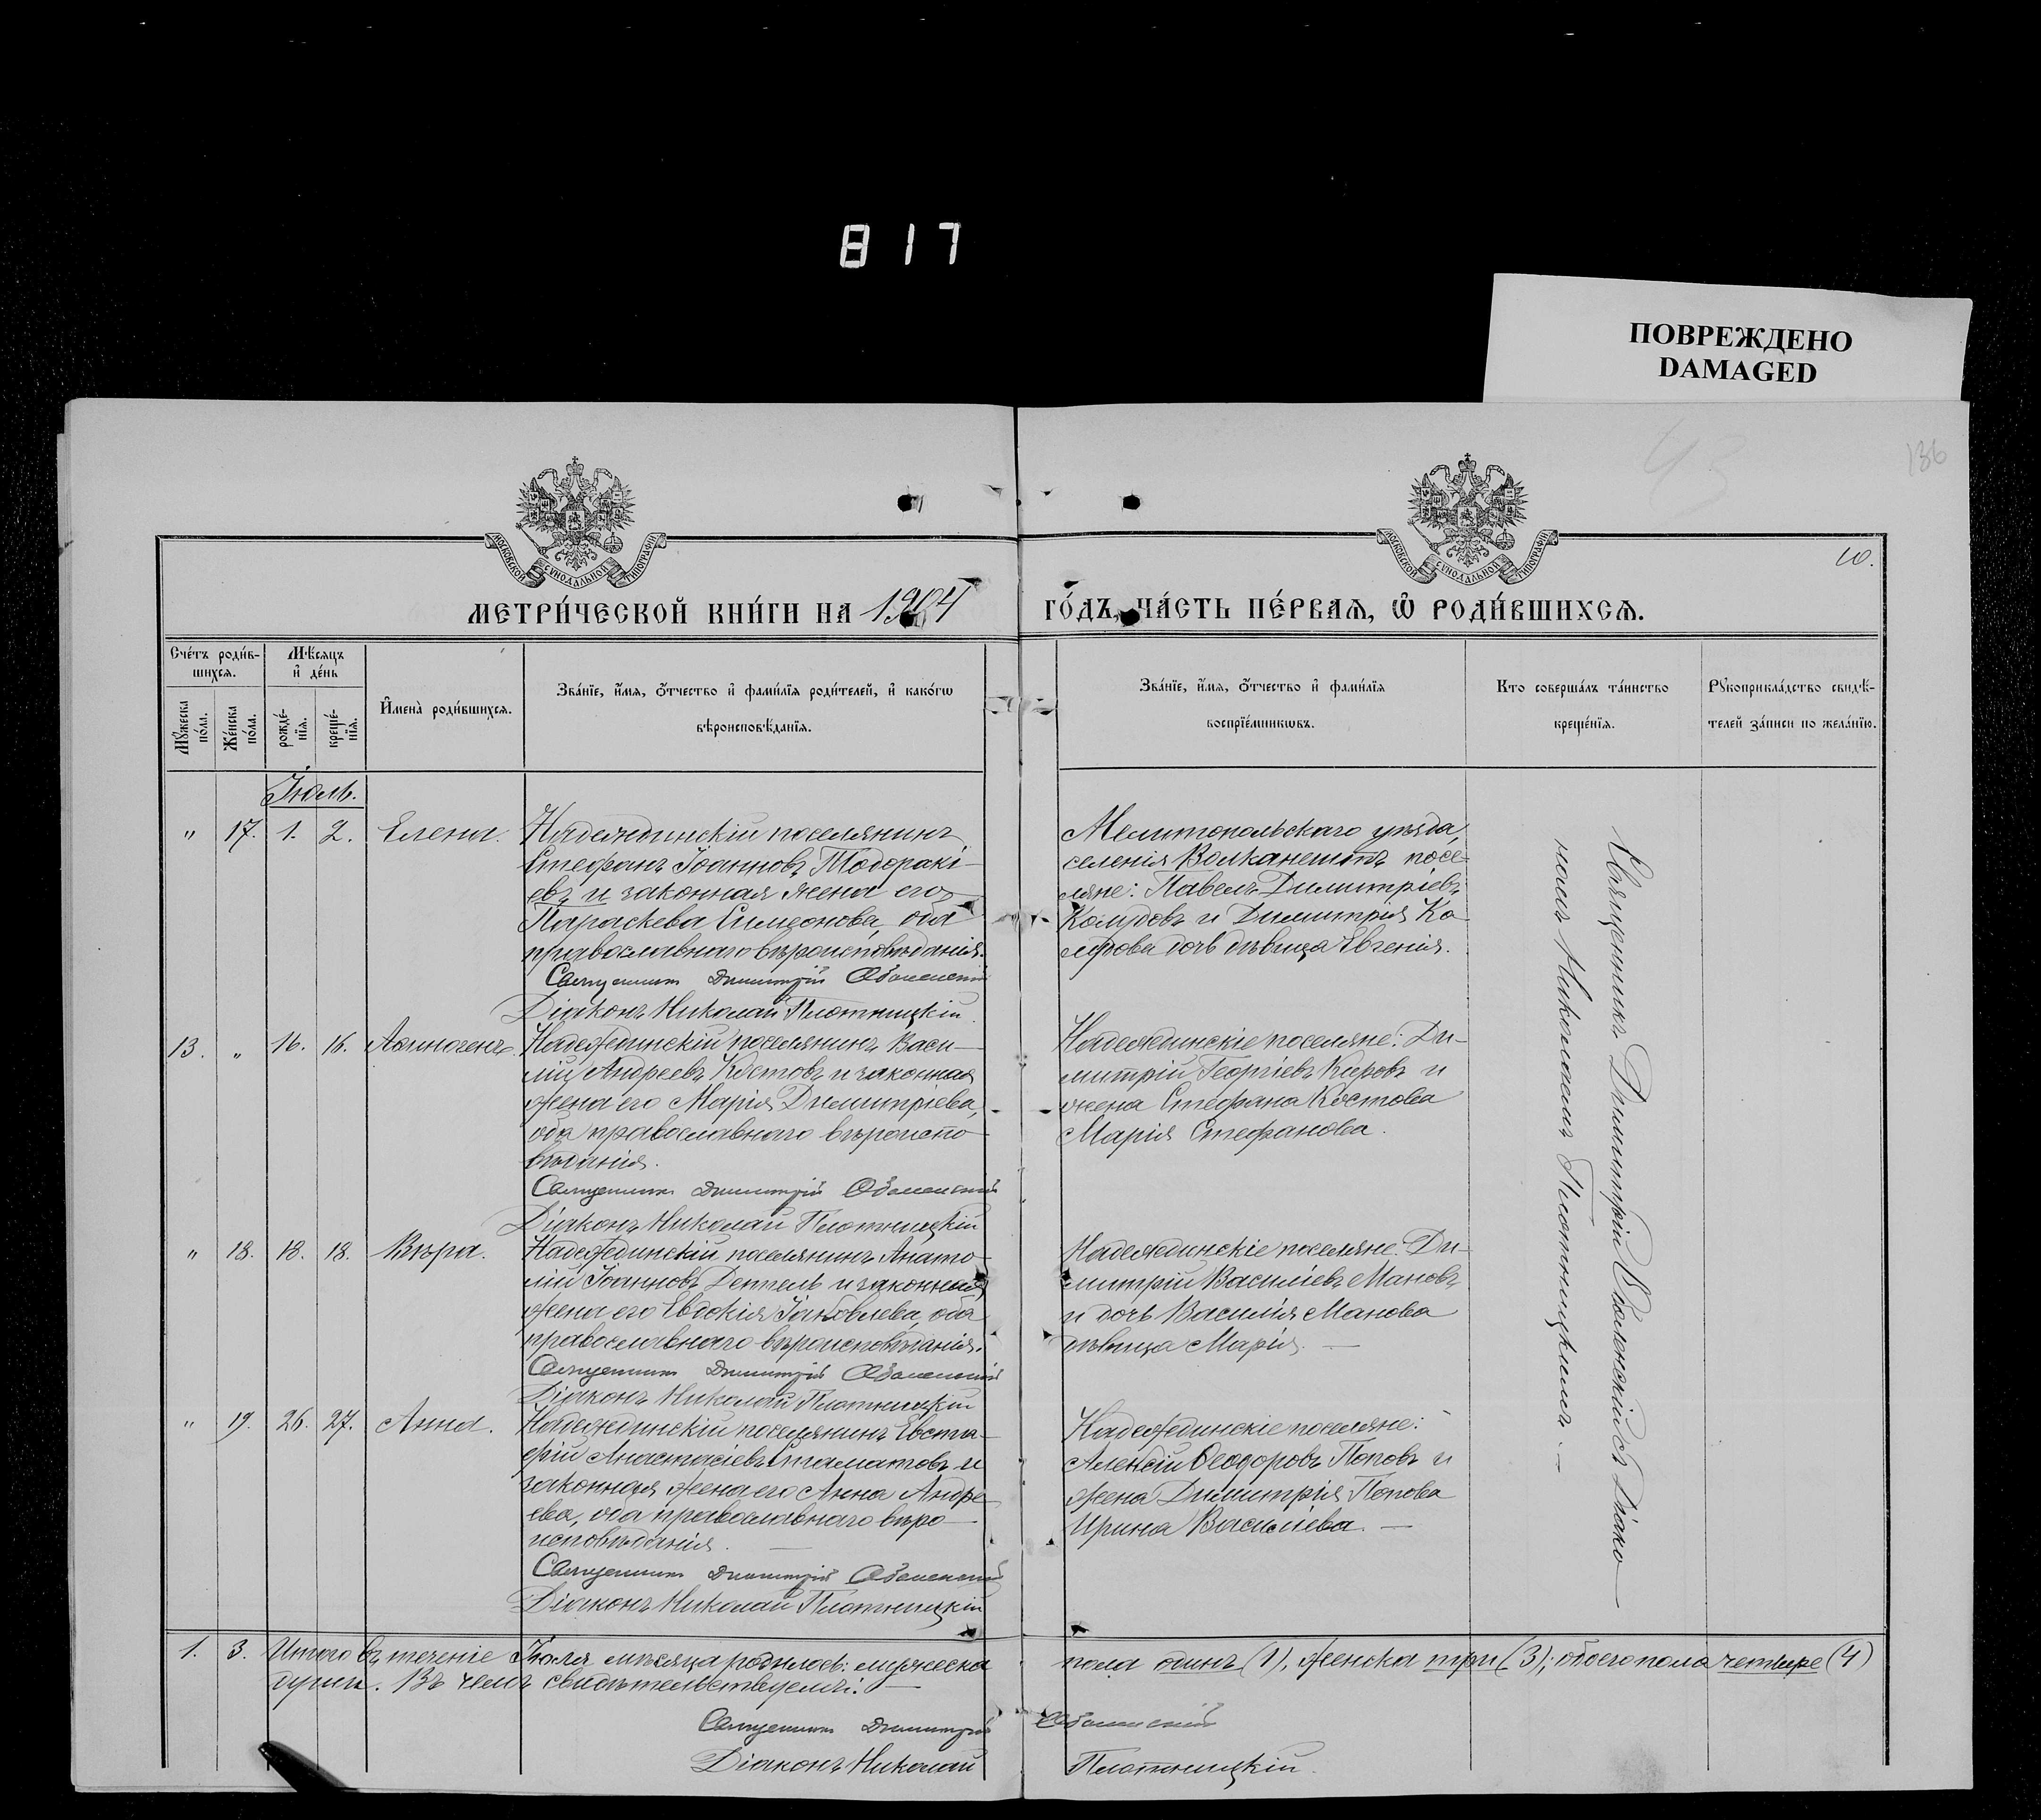 817
ПОВРЕЖДЕНО
DAMAGED
136
10.
МОСКОВСКОЙ СѴНОДАЛЬНОЙ ТИПОГРАФІИ
МОСКОВСКОЙ СѴНОДАЛЬНОЙ ТИПОГРАФІИ
МЕТРИ́ЧЕСКОЙ КНИ́ГИ НА 1904
ГО́ДЪ, ЧА́СТЬ ПЕ́РВАѦ, Ѡ҆ РОДИ́ВШИХСѦ.
Сче́тъ роди́в-
шихсѧ.
Мꙋ́жеска
по́ла.
Же́нска
по́ла.
Мѣ́сяцъ
и҆ де́нь
рожде́-
нїѧ.
креще́-
нїѧ.
И҆мена̀ роди́вшихсѧ.
Зва́нїе, и҆́мѧ, ѻ҆́тчество и҆ фами́лїѧ роди́телей, и҆ како́гѡ
вѣроисповѣ́данїѧ.
Зва́нїе, и҆́мѧ, ѻ҆́тчество и҆ фами́лїѧ
воспрїе́мникѡвъ.
Кто соверша́лъ та́инство
креще́нїѧ.
Рꙋкоприкла́дство свидѣ́-
телей за́писи по жела́нїю.
Іюль.
" 17. 1. 2. Елена.
Надеждинскій поселянинъ
Стефанъ Іоанновъ Тодоракі-
евъ и законная жена его
Параскева Симеонова, оба
православнаго вѣроисповѣданія.
Священникъ Димитрій Оболенскій
Діаконъ Николай Плотницкій
Мелитопольскаго уѣзда,
селенія Волканештъ посе-
ляне: Павелъ Димитріевъ
и Димитрія Ко-
дочь дѣвица Евгенія.
13. " 16. 16. Аѳиногенъ.
Надеждинскій поселянинъ Васи-
лій Андреевъ Костовъ и законная
жена его Марія Димитріева,
оба православнаго вѣроиспо-
вѣданія.
Священникъ Димитрій Оболенскій
Діаконъ Николай Плотницкій
Надеждинскіе поселяне: Ди-
митрій Георгіевъ Кировъ и
жена Стефана Костова
Марія Стефанова.
" 18. 18. 18. Вѣра.
Надеждинскій поселянинъ Анато-
лій Іоанновъ и законная
жена его Евдокія Іаковлева, оба
православнаго вѣроисповѣданія.
Священникъ Димитрій Оболенскій
Діаконъ Николай Плотницкій
Надеждинскіе поселяне: Ди-
митрій Василіевъ Мановъ
и дочь Василія Манова
дѣвица Марія. —
" 19. 26. 27. Анна.
Надеждинскій поселянинъ Евста-
фій Анастасіевъ Стаматовъ и
законная жена его Анна Андре-
ева, оба православнаго вѣро-
исповѣданія. —
Священникъ Димитрій Оболенскій
Діаконъ Николай Плотницкій
Надеждинскіе поселяне:
Алексій Ѳеодоровъ Поповъ и
жена Димитрія Попова
Ирина Василіева. —
Священникъ Димитрій Оболенскій съ Діако-
номъ Николаемъ Плотницкимъ. —
1. 3. Итого въ теченіе Іюля мѣсяца родилось: мужеска
пола одинъ (1), женска три (3); обоего пола четыре (4)
души. Въ чемъ свидѣтельствуемъ: —
Священникъ Димитрій Оболенскій
Діаконъ Николай Плотницкій.